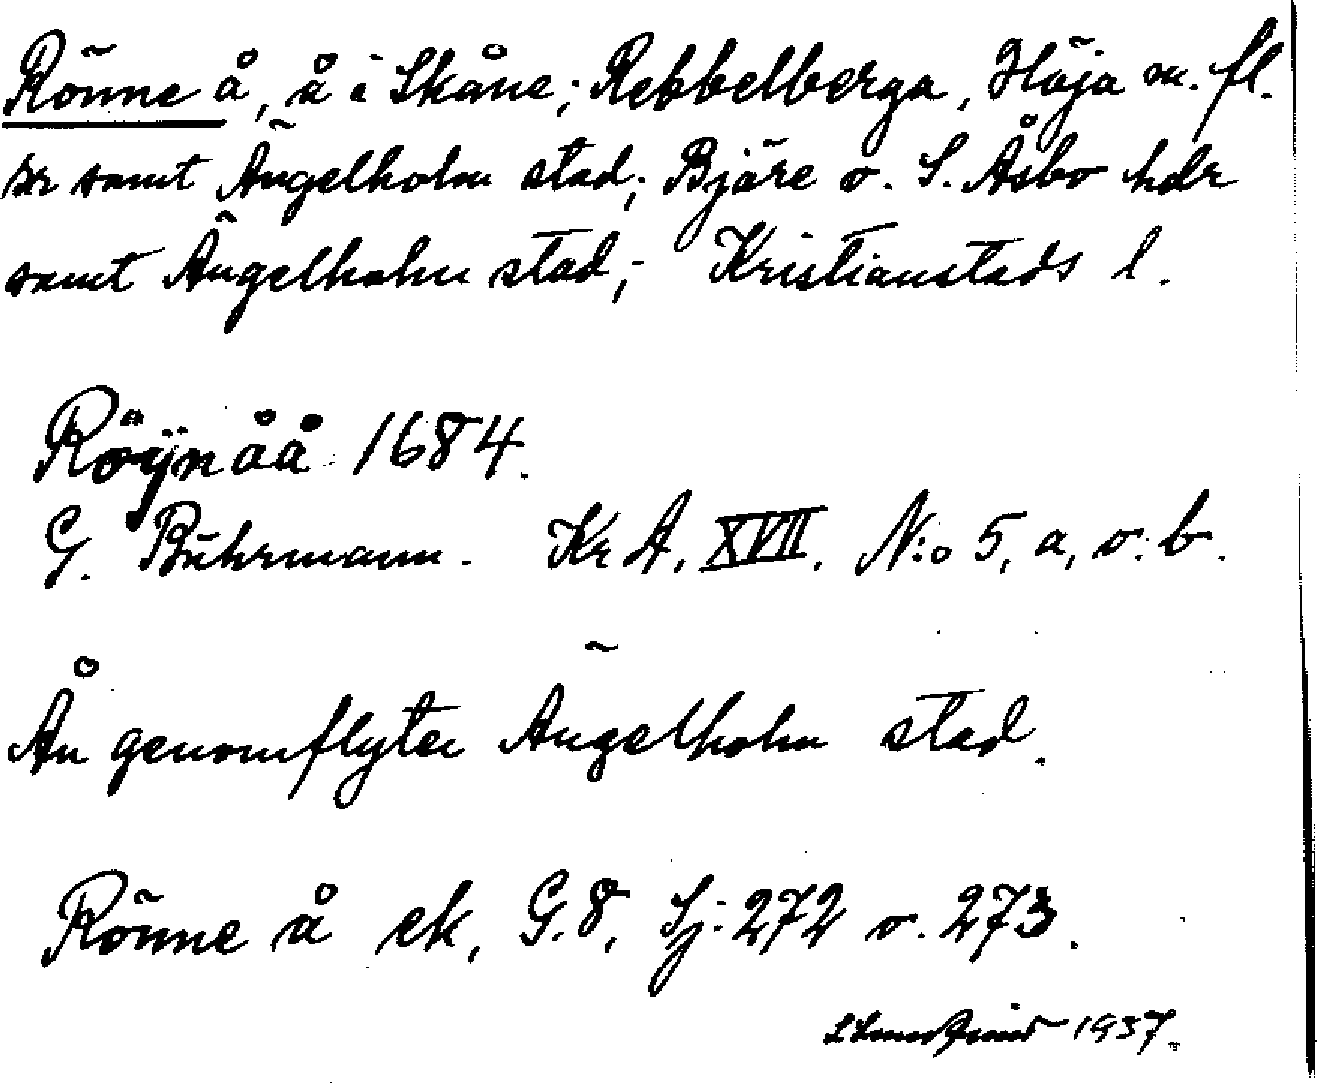 Rönne å, å i Skåne; Rebbelberga, Höja m. fl.
sr samt Ängelholm stad; Bjäre o. S. Åsbo hdr
samt Ängelholm stad; Kristianstads l.
Röÿnåå 1684.
G. Buhrmann. Kr A. XVII. N:o 5, a, o. b.
Ån genomflyter Ängelholm stad.
Rönne å ek. G. 8. Sj: 272 o. 273.
1937.